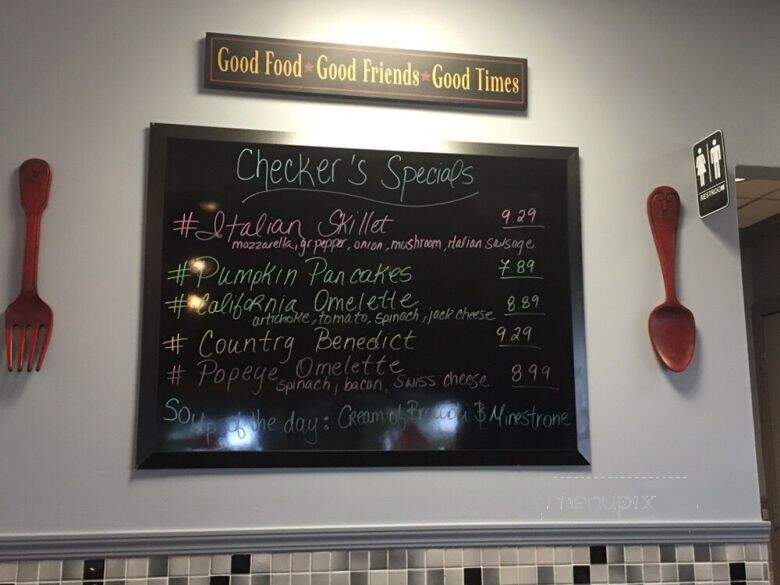 Good Food★Good Friends★Good Times
RESTROOM
Checker's Specials
# Italian Skillet 9.29
mozzarella, gr pepper, onion, mushroom, italian sausage
# Pumpkin Pancakes 7.89
# California Omelette 8.89
artichoke, tomato, spinach, jack cheese
# Country Benedict 9.29
# Popeye Omelette 8.99
spinach, bacon, swiss cheese
Soup of the day: Cream of Broccoli & Minestrone
menupix